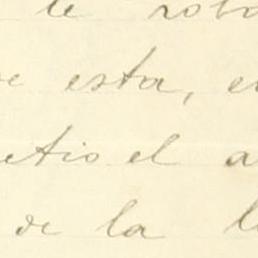 le robo
e esta, e
etio el a
de la l